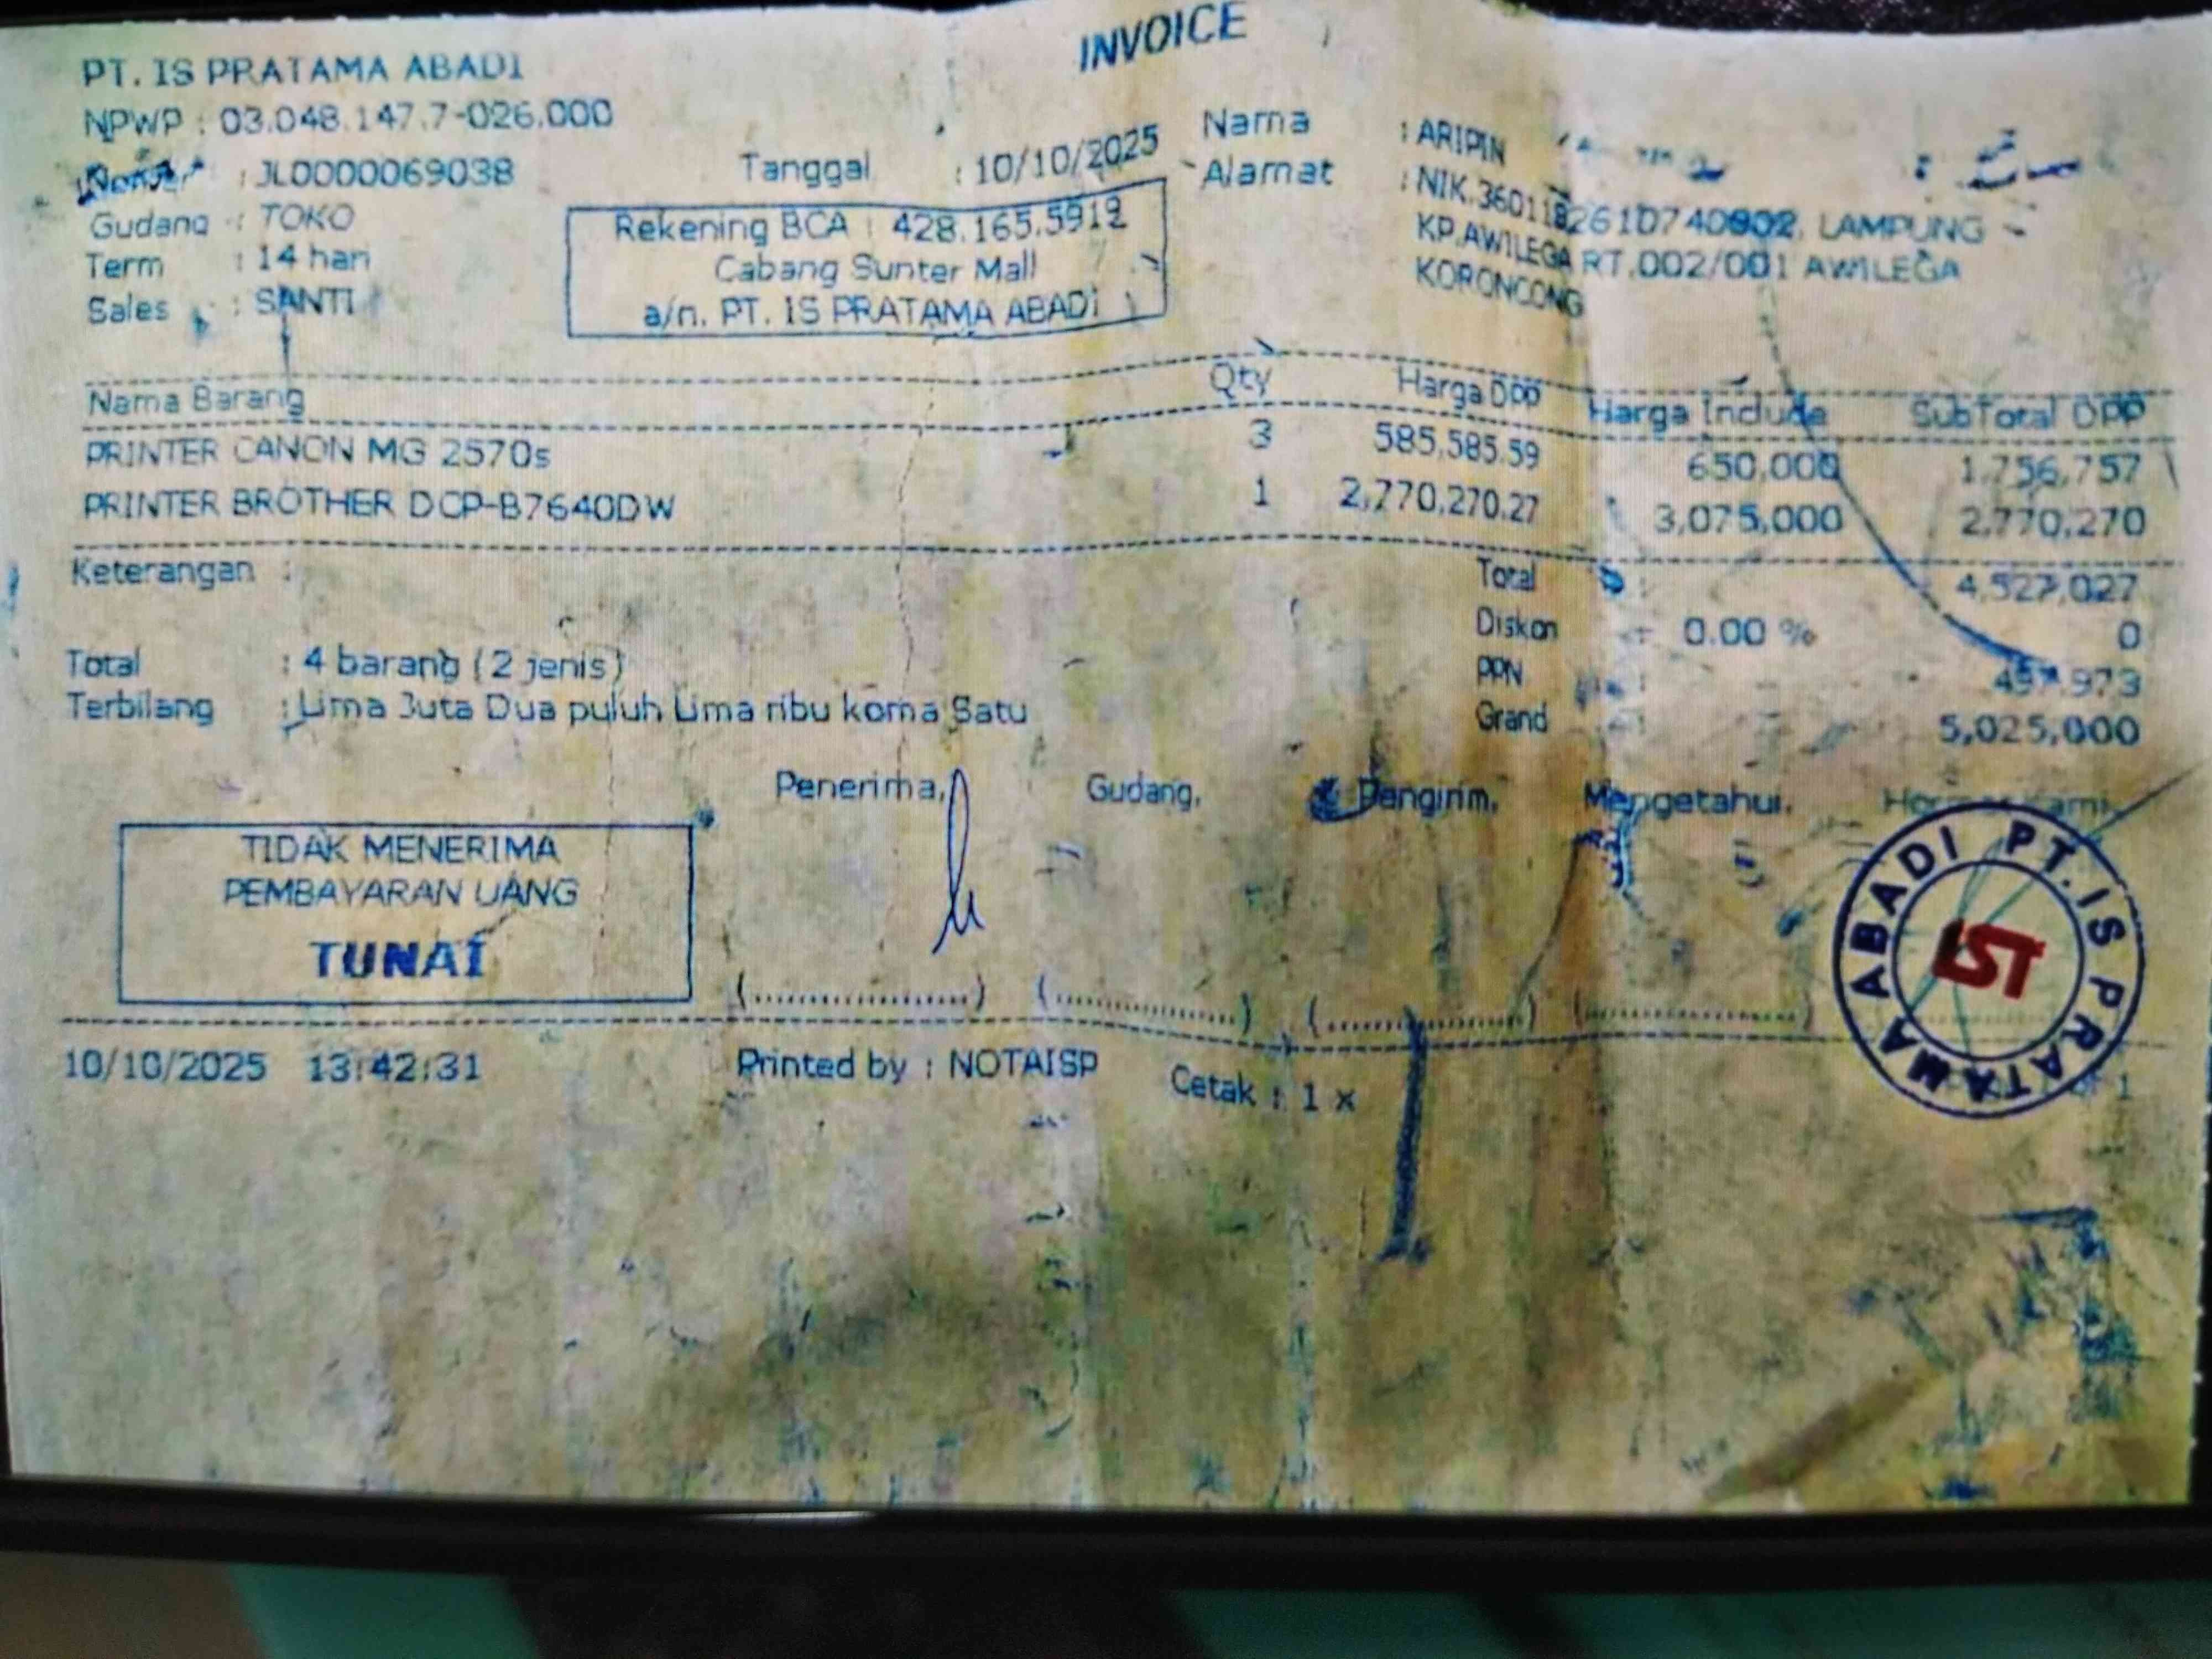 INVOICE
PT. IS PRATAMA ABADI
NPWP : 03.048.147.7-026.000
: JL0000069038
Tanggal : 10/10/2025
Nama : ARIPIN
Gudang : TOKO
Alamat : NIK.3601182610740802, LAMPUNG
KP.AWILEGA RT.002/001 AWILEGA
KORONCONG
Term : 14 hari
Sales : SANTI
Rekening BCA : 428.165.5912
Cabang Sunter Mall
a/n. PT. IS PRATAMA ABADI
Nama Barang Qty Harga DPP Harga Include SubTotal DPP
PRINTER CANON MG 2570s 3 585,585.59 650,000 1,756,757
PRINTER BROTHER DCP-B7640DW 1 2,770,270.27 3,075,000 2,770,270
Keterangan :
Total : 4,527,027
Diskon : 0.00 % 0
Total : 4 barang (2 jenis)
PPN : 497,973
Terbilang : Lima Juta Dua puluh Lima ribu koma Satu
Grand : 5,025,000
Penerima, Gudang, Pengirim, Mengetahui, Hormat Kami,
TIDAK MENERIMA
PEMBAYARAN UANG
TUNAI
PT. IS PRATAMA ABADI
IST
(....................) (....................) (....................) (....................)
10/10/2025 13:42:31 Printed by : NOTAISP Cetak : 1 x